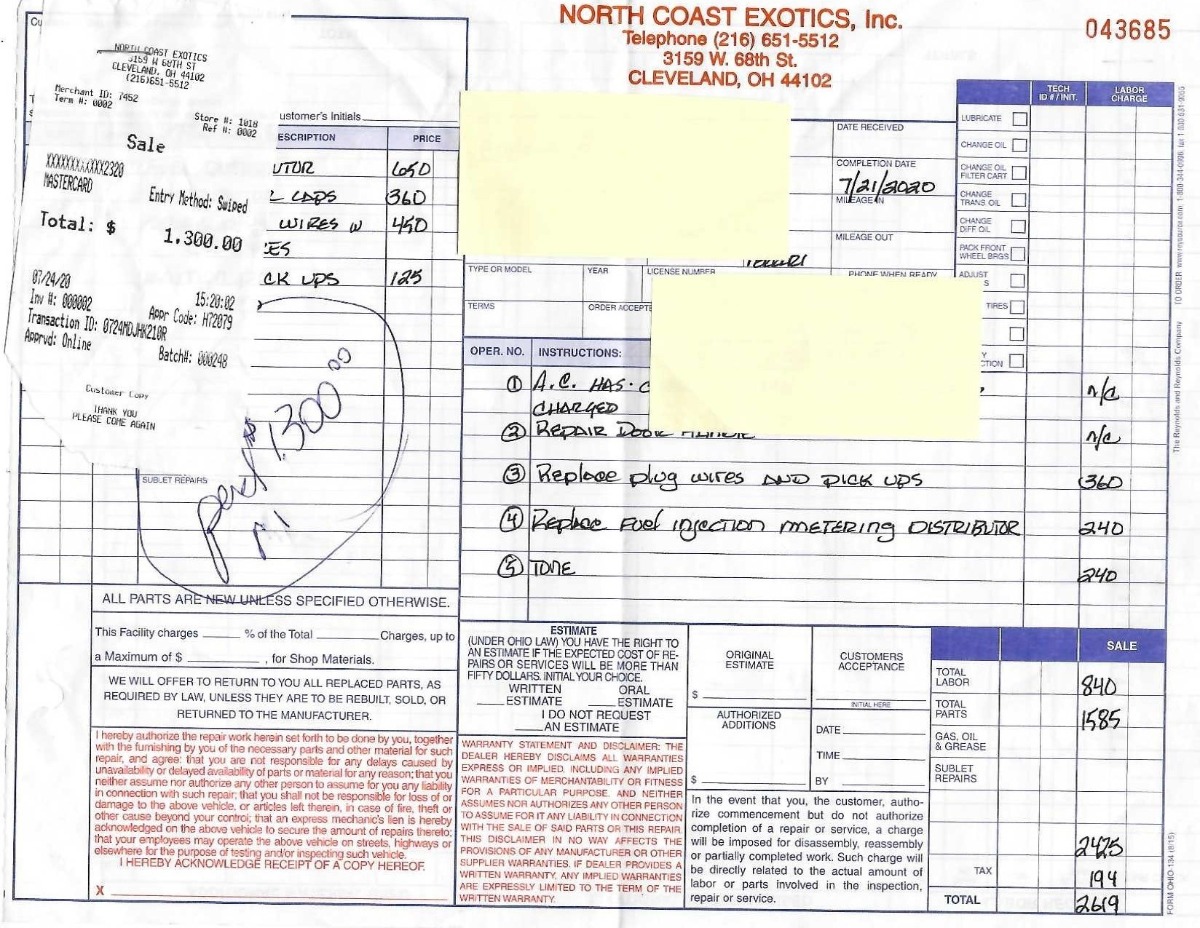 NORTH COAST EXOTICS, Inc.
Telephone (216) 651-5512
3159 W. 68th St.
CLEVELAND, OH 44102
043685
NORTH COAST EXOTICS
3159 W 68TH ST
CLEVELAND, OH 44102
(216)651-5512
Merchant ID: 7452
Term #: 0002
Store #: 1018
Ref #: 0002
Sale
XXXXXXXXXXXX2320
MASTERCARD
Entry Method: Swiped
Total: $ 1,300.00
07/24/20 15:20:02
Inv #: 000002 Appr Code: H72079
Transaction ID: 0724MDJHK210R
Apprvd: Online Batch#: 000248
Customer Copy
THANK YOU
PLEASE COME AGAIN
Cu
ustomer's Initials
ESCRIPTION PRICE
UTOR 650
CAPS 360
WIRES W 450
ES
CK UPS 125
1,300 00
SUBLET REPAIRS
DATE RECEIVED
COMPLETION DATE
7/21/2020
MILEAGE IN
MILEAGE OUT
TYPE OR MODEL YEAR LICENSE NUMBER PHONE WHEN READY
TERMS ORDER ACCEPTE
TECH ID # / INIT. LABOR CHARGE
LUBRICATE
CHANGE OIL
CHANGE OIL FILTER CART
CHANGE TRANS OIL
CHANGE DIFF OIL
PACK FRONT WHEEL BRGS
ADJUST
TIRES
OPER. NO. INSTRUCTIONS:
① A.C. HAS C n/c
CHARGED
② REPAIR DOOR HANDLE n/c
③ Replace plug wires AND PICK UPS 360
④ Replace Fuel injection metering DISTRIBUTOR 240
⑤ TUNE 240
ALL PARTS ARE NEW UNLESS SPECIFIED OTHERWISE.
This Facility charges ______ % of the Total ______ Charges, up to
a Maximum of $ ______ , for Shop Materials.
WE WILL OFFER TO RETURN TO YOU ALL REPLACED PARTS, AS
REQUIRED BY LAW, UNLESS THEY ARE TO BE REBUILT, SOLD, OR
RETURNED TO THE MANUFACTURER.
I hereby authorize the repair work herein set forth to be done by you, together
with the furnishing by you of the necessary parts and other material for such
repair, and agree: that you are not responsible for any delays caused by
unavailability or delayed availability of parts or material for any reason; that you
neither assume nor authorize any other person to assume for you any liability
in connection with such repair; that you shall not be responsible for loss of or
damage to the above vehicle, or articles left therein, in case of fire, theft or
other cause beyond your control; that an express mechanic's lien is hereby
acknowledged on the above vehicle to secure the amount of repairs thereto;
that your employees may operate the above vehicle on streets, highways or
elsewhere for the purpose of testing and/or inspecting such vehicle.
I HEREBY ACKNOWLEDGE RECEIPT OF A COPY HEREOF.
X
ESTIMATE
(UNDER OHIO LAW) YOU HAVE THE RIGHT TO
AN ESTIMATE IF THE EXPECTED COST OF RE-
PAIRS OR SERVICES WILL BE MORE THAN
FIFTY DOLLARS. INITIAL YOUR CHOICE.
WRITTEN ORAL
___ESTIMATE ___ESTIMATE
I DO NOT REQUEST
___AN ESTIMATE
WARRANTY STATEMENT AND DISCLAIMER: THE
DEALER HEREBY DISCLAIMS ALL WARRANTIES
EXPRESS OR IMPLIED, INCLUDING ANY IMPLIED
WARRANTIES OF MERCHANTABILITY OR FITNESS
FOR A PARTICULAR PURPOSE, AND NEITHER
ASSUMES NOR AUTHORIZES ANY OTHER PERSON
TO ASSUME FOR IT ANY LIABILITY IN CONNECTION
WITH THE SALE OF SAID PARTS OR THIS REPAIR.
THIS DISCLAIMER IN NO WAY AFFECTS THE
PROVISIONS OF ANY MANUFACTURER OR OTHER
SUPPLIER WARRANTIES. IF DEALER PROVIDES A
WRITTEN WARRANTY, ANY IMPLIED WARRANTIES
ARE EXPRESSLY LIMITED TO THE TERM OF THE
WRITTEN WARRANTY.
ORIGINAL ESTIMATE
$
CUSTOMERS ACCEPTANCE
INITIAL HERE
AUTHORIZED ADDITIONS
$
DATE
TIME
BY
In the event that you, the customer, autho-
rize commencement but do not authorize
completion of a repair or service, a charge
will be imposed for disassembly, reassembly
or partially completed work. Such charge will
be directly related to the actual amount of
labor or parts involved in the inspection,
repair or service.
SALE
TOTAL LABOR 840
TOTAL PARTS 1585
GAS, OIL & GREASE
SUBLET REPAIRS
2425
TAX 194
TOTAL 2619
The Reynolds and Reynolds Company
FORM OHIO-134 (8/15)